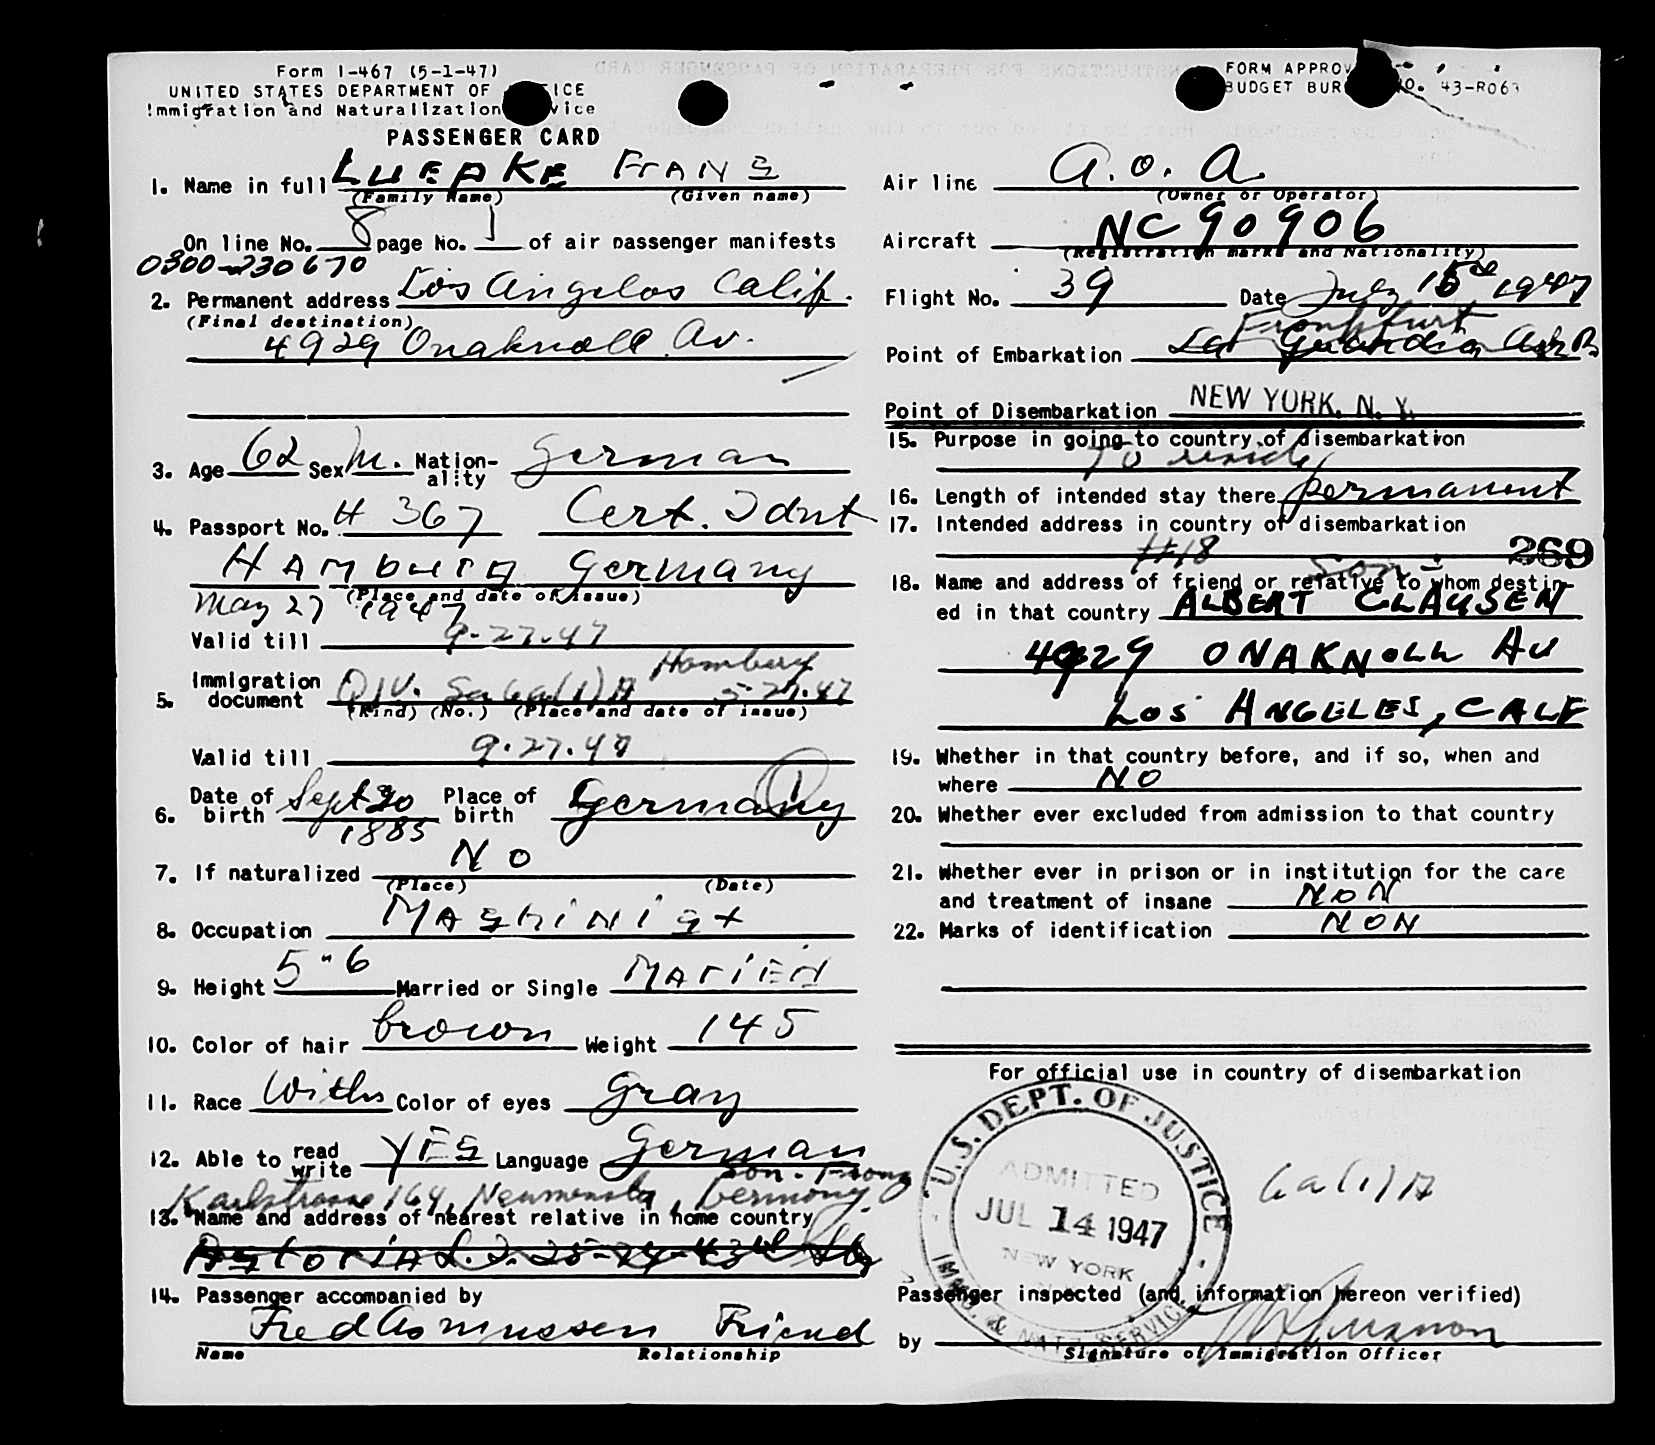 Form I-467 (5-1-47)
UNITED STATES DEPARTMENT OF ICE
Immigration and Naturalization vice
PASSENGER CARD
1. Name in full LUEPKE FrANS
(Family Name) (Given name)
On line No. 8 page No. 1 of air passenger manifests
0300-230670
2. Permanent address Los Angelos Calif.
(Final destination)
4929 Onaknoll Av.
3. Age 62 Sex M. Nation-ality German
4. Passport No. H 367 Cert. Idnt
HAMburg Germany
(Place and date of issue)
May 27 1947
Valid till 9-27-47
Hamburg
5. Immigration document QIV. 6a(1)A 5-27-47
(Kind) (No.) (Place and date of issue)
Valid till 9.27.47
6. Date of birth Sept 30 1885 Place of birth Germany
1
7. If naturalized NO
(Place) (Date)
8. Occupation MAshiNist
9. Height 5"6 Married or Single MAriED
10. Color of hair brown Weight 145
11. Race Withs Color of eyes gray
12. Able to read write YES Language German
son - Franz
Karlstrasse 164, Neumunster, Germany.
13. Name and address of nearest relative in home country
AstoriA L.I. 25-24-43d Str
14. Passenger accompanied by
Fred Asmussen Friend
Name Relationship
FORM APPROV
BUDGET BUR NO. 43-R063
Air line A.O.A.
(Owner or Operator)
Aircraft NC90906
(Registration marks and Nationality)
Flight No. 39 Date July 15 1947
Frankfurt
Point of Embarkation La Guardia
Point of Disembarkation NEW YORK, N. Y.
15. Purpose in going to country of disembarkation
To reside
16. Length of intended stay there permanent
17. Intended address in country of disembarkation
#18
269
Son -
18. Name and address of friend or relative to whom destin-
ed in that country ALBERT CLAUSEN
4929 ONAKNOLL AV
LOS ANGELES, CALF
19. Whether in that country before, and if so, when and
where NO
20. Whether ever excluded from admission to that country
21. Whether ever in prison or in institution for the care
and treatment of insane NON
22. Marks of identification NON
For official use in country of disembarkation
U.S. DEPT. OF JUSTICE
ADMITTED
JUL 14 1947
NEW YORK
IMMG. & NATZ SERVICE
6a(1)A
Passenger inspected (and information hereon verified)
by
Signature of Immigration Officer